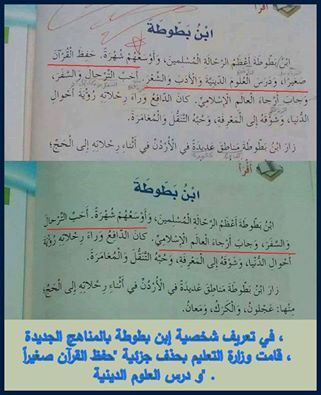 أقرأ
ابْنُ بَطّوطَةَ
ابْنُ بَطّوطَةَ أَعْظَمُ الرَّحّالَةِ الْمُسْلِمينَ، وَأَوْسَعُهُمْ شُهْرَةً. حَفِظَ الْقُرْآنَ
صَغيرًا، وَدَرَسَ الْعُلومَ الدّينِيَّةَ وَالْأَدَبَ وَالشِّعْرَ. أَحَبَّ التَّرْحالَ وَالسَّفَرَ،
وَجابَ أَرْجاءَ الْعالَمِ الْإِسْلامِيِّ. كانَ الدّافِعُ وَراءَ رِحْلاتِهِ رُؤْيَةَ أَحْوالِ
الدُّنْيا، وَشَوْقُهُ إِلى الْمَعْرِفَةِ، وَحُبُّهُ التَّنَقُّلَ وَالْمُغامَرَةَ.
زارَ ابْنُ بَطّوطَةَ مَناطِقَ عَديدَةً في الْأُرْدُنِّ في أَثْناءِ رِحْلاتِهِ إِلى الْحَجِّ؛
أقرأ
ابْنُ بَطّوطَةَ
ابْنُ بَطّوطَةَ أَعْظَمُ الرَّحّالَةِ الْمُسْلِمينَ، وَأَوْسَعُهُمْ شُهْرَةً. أَحَبَّ التَّرْحالَ
وَالسَّفَرَ، وَجابَ أَرْجاءَ الْعالَمِ الْإِسْلامِيِّ. كانَ الدّافِعُ وَراءَ رِحْلاتِهِ رُؤْيَةَ
أَحْوالِ الدُّنْيا، وَشَوْقُهُ إِلى الْمَعْرِفَةِ، وَحُبُّهُ التَّنَقُّلَ وَالْمُغامَرَةَ.
زارَ ابْنُ بَطّوطَةَ مَناطِقَ عَديدَةً في الْأُرْدُنِّ في أَثْناءِ رِحْلاتِهِ إِلى الْحَجِّ،
مِنْها: عَجْلونُ، وَالْكَرَكُ، وَمَعانُ.
، في تعريف شخصية إبن بطوطة بالمناهج الجديدة
، قامت وزارة التعليم بحذف جزئية "حفظ القرآن صغيراً
. "و درس العلوم الدينية